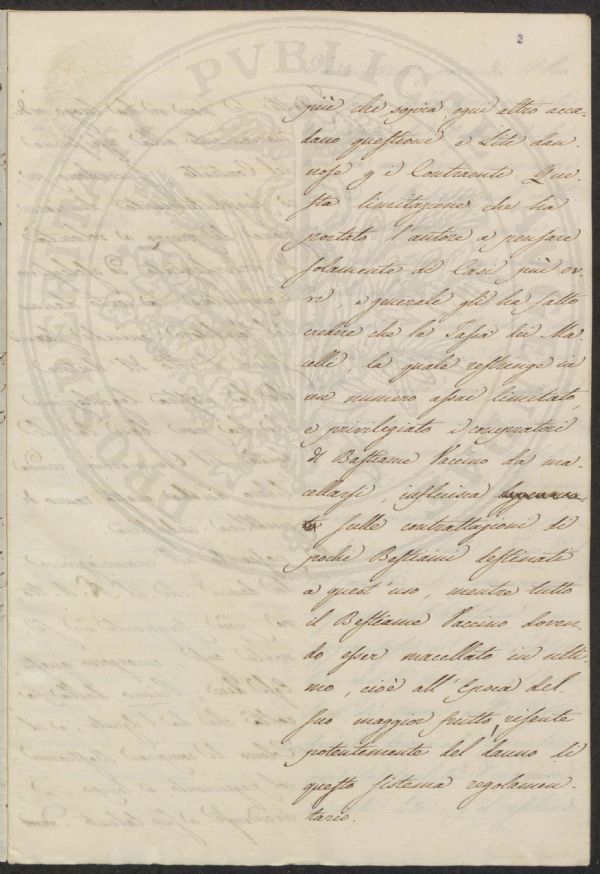 3
più che sopra ogni altro acca-
dano questioni e liti dan-
nose p i Contraenti. Que-
sta limitazione che ha
portato l'autore a pensare
solamente ai Casi più ov-
vi, e generali gli ha fatto
credere che la Tassa dei Ma-
celli, la quale restringe in
un numero assai limitato,
e privilegiato i compratori
di Bestiame Vaccino da ma-
cellarsi, influisca
sulle contrattazioni di
pochi Bestiami destinati
a quest'uso, mentre tutto
il Bestiame Vaccino doven-
do esser macellato in ulti-
mo, cioè all'epoca del
suo maggior frutto, risente
potentemente del danno di
questo sistema regolamen-
tario.